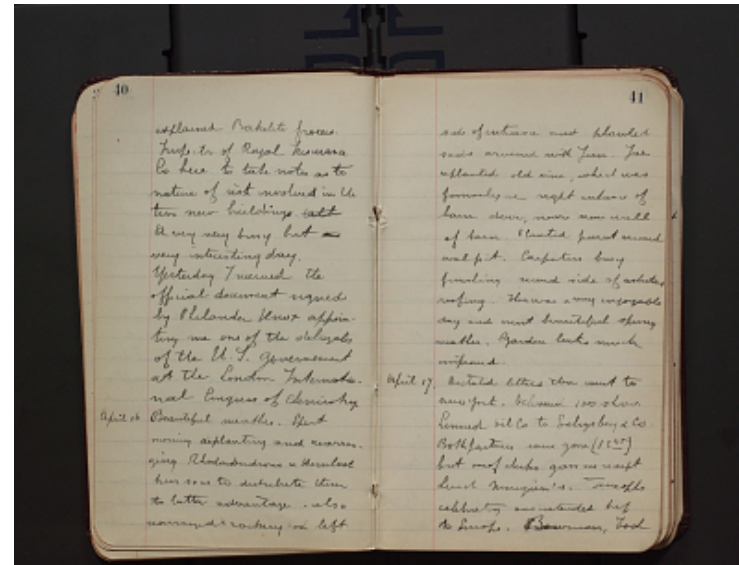 40
explained Bakelite process.
Inspector of Royal Insurance
Co here to take notes as to
nature of risk involved in the
two new buildings
A very very busy but
very interesting day.
Yesterday I received the
official document signed
by Philander Knox appoin-
ting me one of the delegates
of the U. S. Government
at the London Internatio-
nal Congress of Chemistry
April 16 Beautiful weather. Spent
morning replanting and rearran-
ging Rhododendrons &
so as to distribute them
to better advantage. also
rearranged rockery on left
41
side of entrance and planted
around with
replanted old vine, which was
formerly on right entrance of
barn door, now near wall
of barn. Planted around
wall pit. Carpenters busy
finishing second side of asbestos
roofing. This was a very enjoyable
day and most beautiful spring
weather. Garden looks much
improved.
April 17. Dictated letters then went to
New York. 100 shares
Linseed Oil Co to Salisbury & Co
Both gone
but gave me receipt
Lunch
celebrating
to Europe. Bowman,